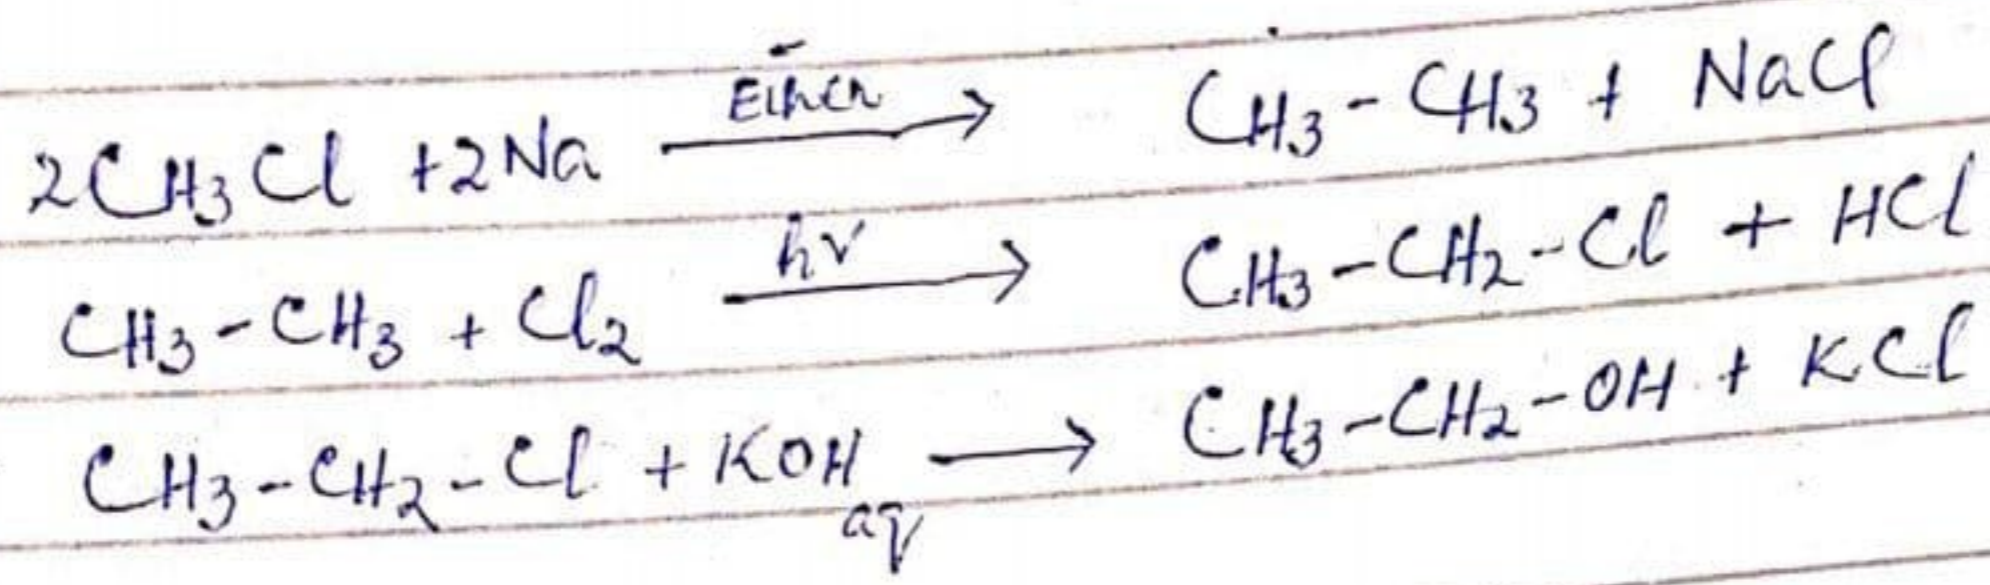 2CH₃Cl + 2Na —Ether→ CH₃-CH₃ + NaCl
CH₃-CH₃ + Cl₂ —hν→ CH₃-CH₂-Cl + HCl
CH₃-CH₂-Cl + KOH aq → CH₃-CH₂-OH + KCl